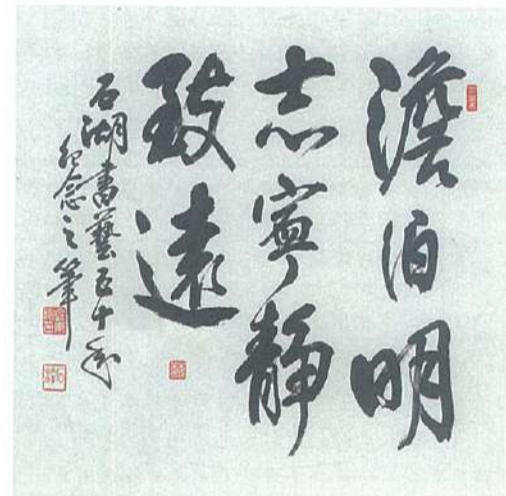 澹泊明
志寧靜
致遠
石湖書藝五十年
紀念之筆